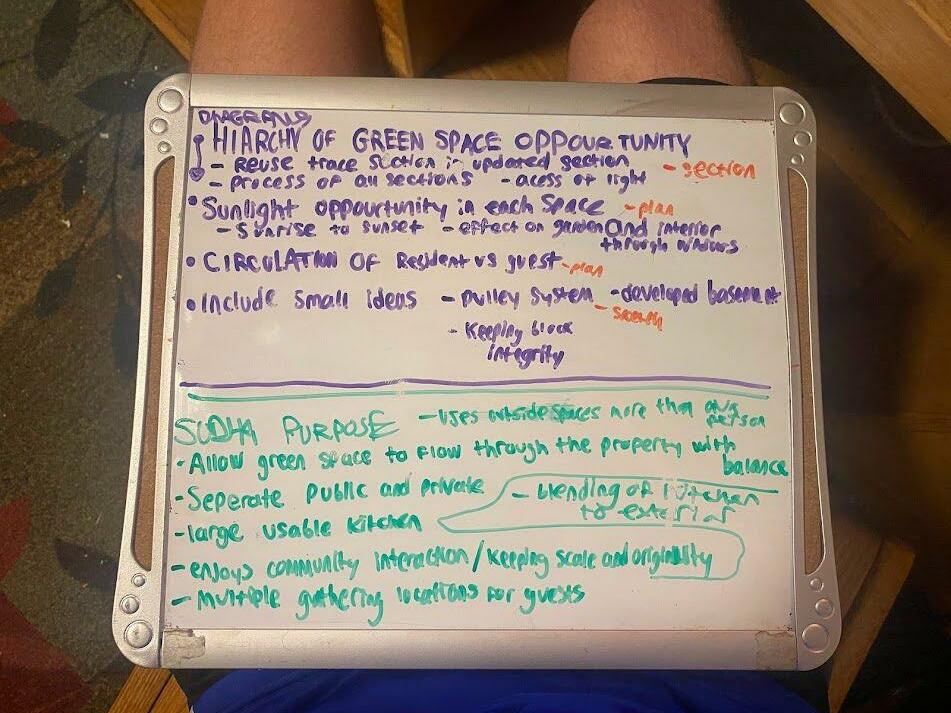 DIAGRAMS
• HIARCHY OF GREEN SPACE OPPOURTUNITY
- REUSE trace Section in updated section - section
- process of all sections - acess of light
• Sunlight oppourtunity in each space - plan
- Sunrise to sunset - effect on garden and interior
through windows
• CIRCULATION OF Resident vs guest - plan
• Include Small ideas - pulley system - developed basement
- Keeping block
integrity
SUDHA PURPOSE - Uses outside spaces more than avg
person
- Allow green space to flow through the property with
balance
- Seperate public and private - blending of kitchen
to exterior
- large usable kitchen
- enjoys community interaction / keeping scale and originality
- Multiple gathering locations for guests